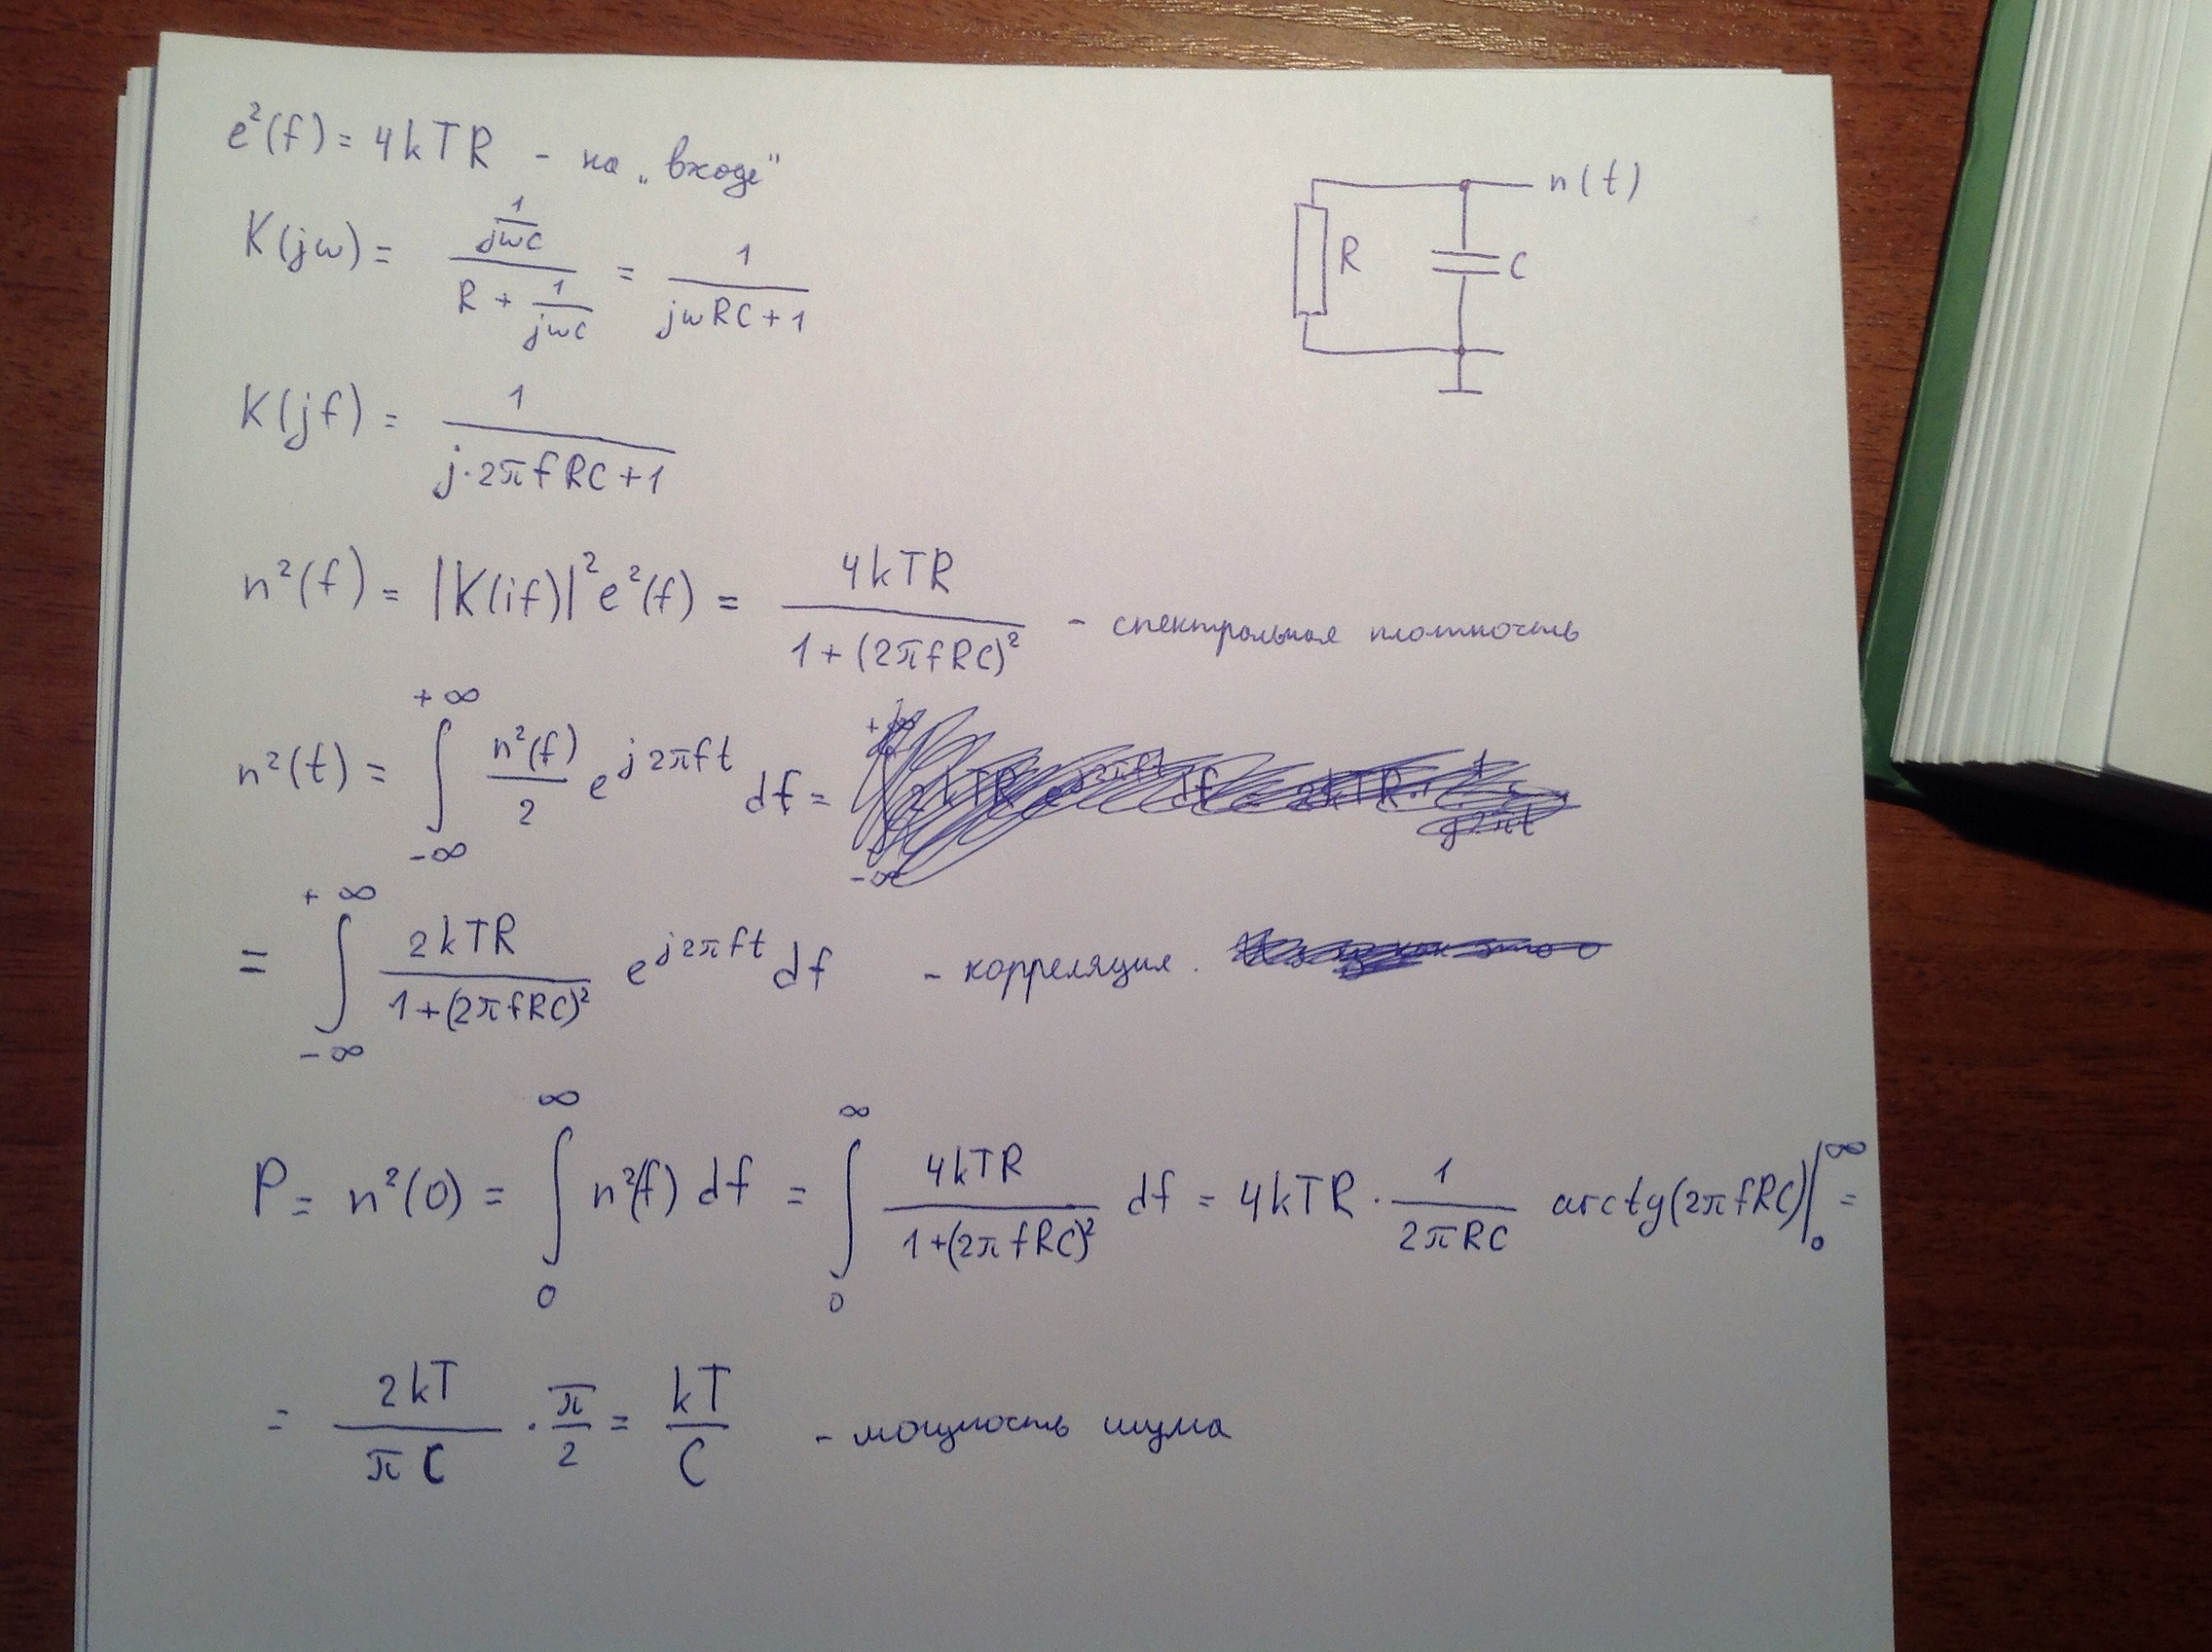 e²(f) = 4kTR - на „входе"
n(t)
R
C
K(jω) = (1/(jωC))/(R + 1/(jωC)) = 1/(jωRC+1)
K(jf) = 1/(j·2πfRC+1)
n²(f) = |K(if)|² e²(f) = 4kTR/(1+(2πfRC)²) - спектральная плотность
n²(t) = ∫_{-∞}^{+∞} n²(f)/2 e^{j2πft} df =
= ∫_{-∞}^{+∞} 2kTR/(1+(2πfRC)²) e^{j2πft} df - корреляция.
P = n²(0) = ∫_0^∞ n²(f) df = ∫_0^∞ 4kTR/(1+(2πfRC)²) df = 4kTR · 1/(2πRC) arctg(2πfRC)|_0^∞ =
= 2kT/(πC) · π/2 = kT/C - мощность шума